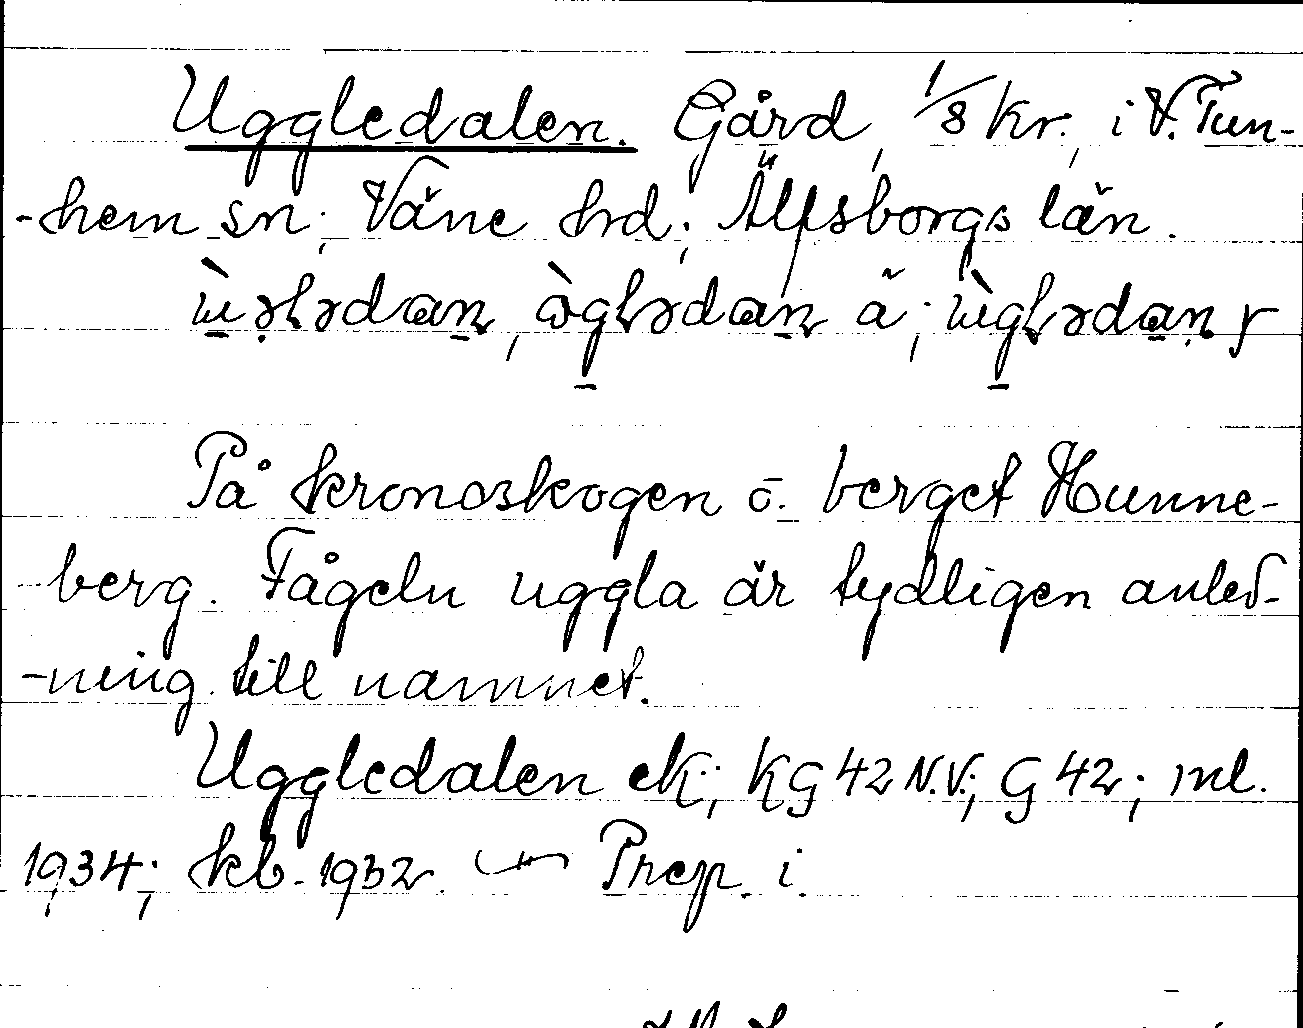 Uggledalen. Gård, 1/8 kr., i V. Tun-
-hem sn; Väne hrd; Älfsborgs län.
ä; y
På kronoskogen ö. berget Hunne-
berg. Fågeln uggla är tydligen anled-
-ning till namnet.
Uggledalen ek; KG 42 N.V.; G 42; ml.
1934; kb. 1932. — Prep. i.